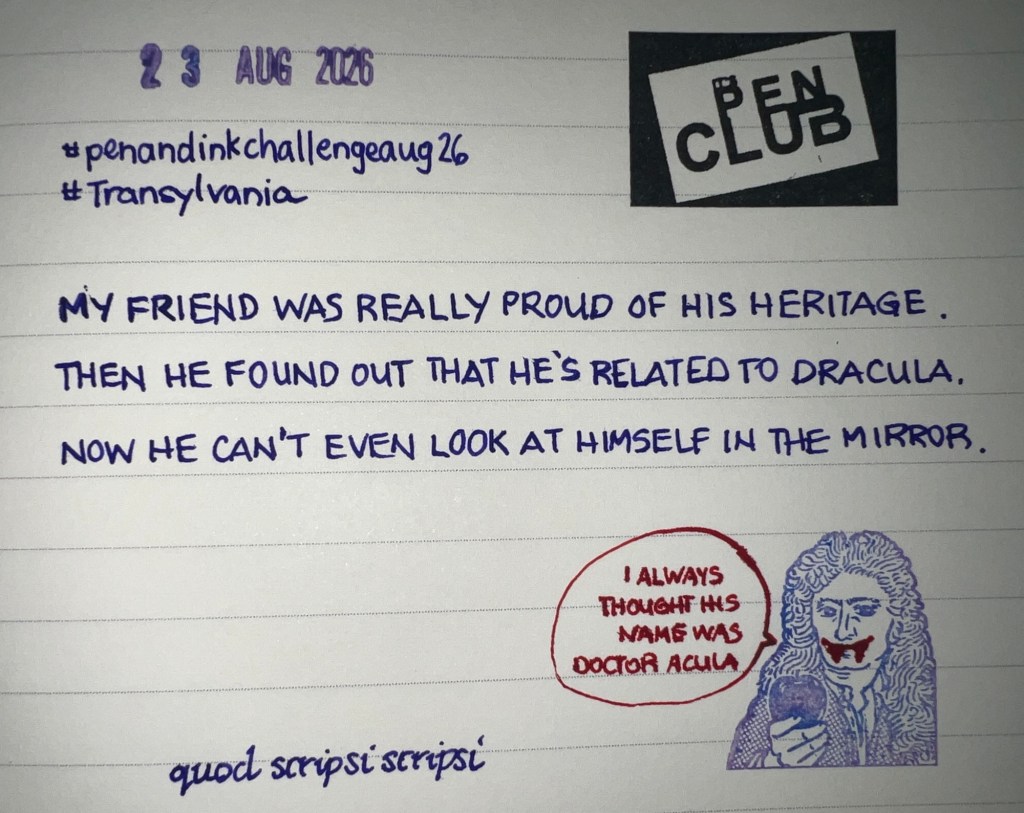 23 AUG 2026
PEN
CLUB
#penandinkchallengeaug26
#Transylvania
MY FRIEND WAS REALLY PROUD OF HIS HERITAGE.
THEN HE FOUND OUT THAT HE'S RELATED TO DRACULA.
NOW HE CAN'T EVEN LOOK AT HIMSELF IN THE MIRROR.
I ALWAYS
THOUGHT HIS
NAME WAS
DOCTOR ACULA
quod scripsi scripsi